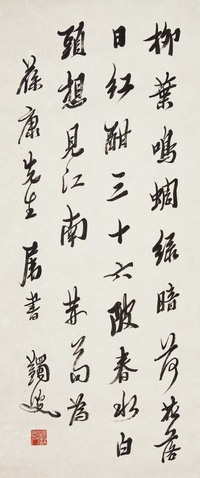 柳葉鳴蜩綠暗荷花落
日紅酣三十六陂春水白
頭想見江南 荊公句為
葆康先生屬書
蠲叟